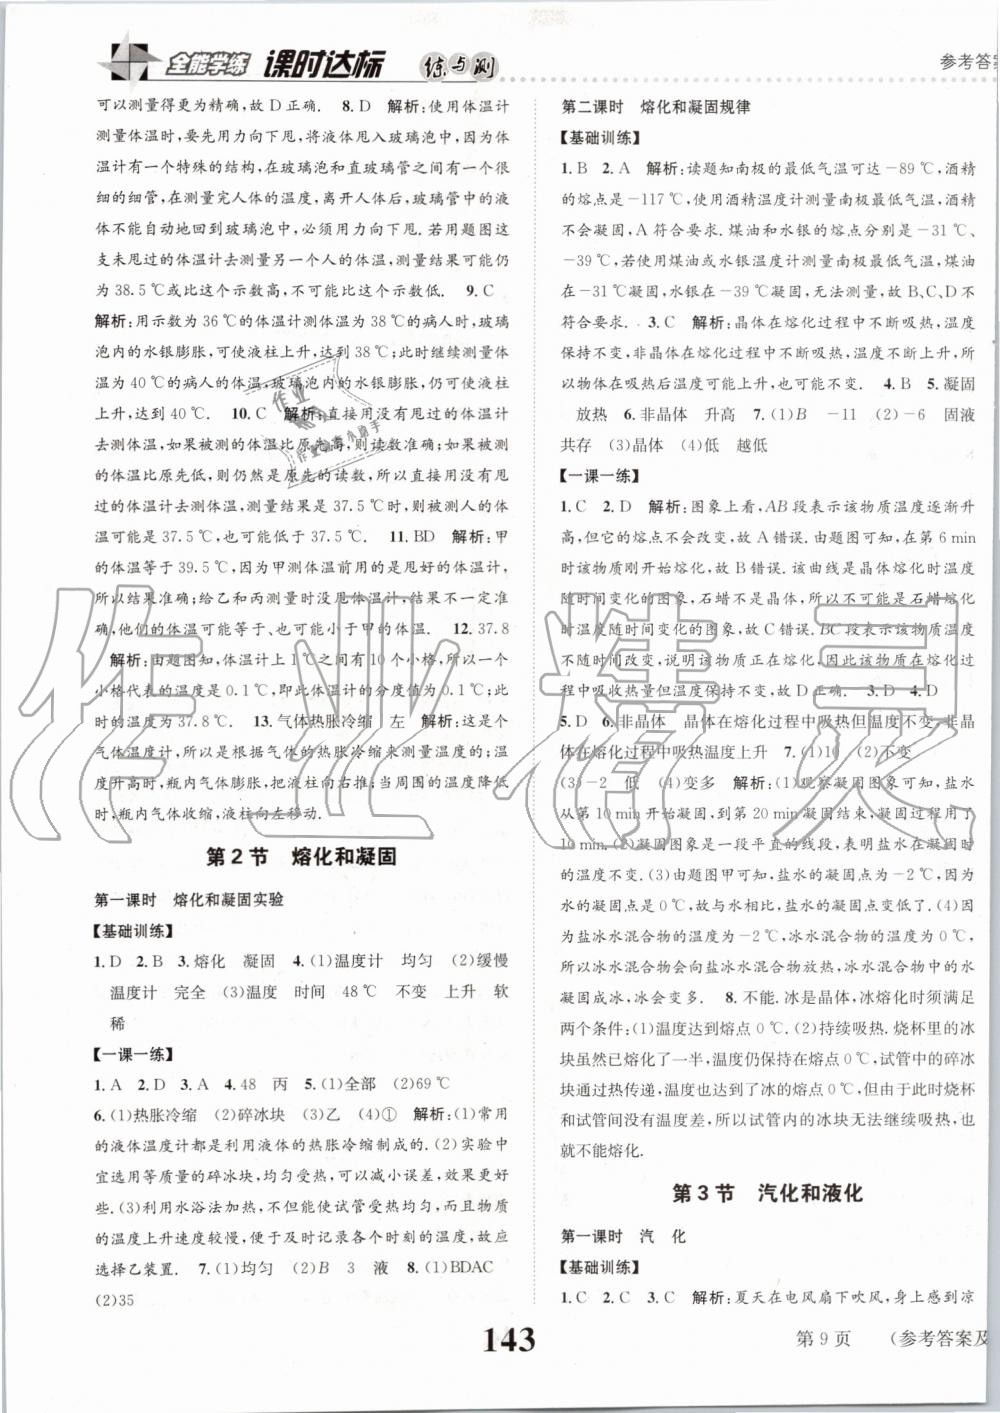 全能学练 课时达标 练与测
参考答案
可以测量得更为精确,故D正确. 8. D 解析:使用体温计
测量体温时,要先用力向下甩,将液体甩入玻璃泡中,因为体
温计有一个特殊的结构,在玻璃泡和直玻璃管之间有一个很
细的细管,在测量完人的温度,离开人体后,玻璃管中的液
体不能自动地回到玻璃泡中,必须用力向下甩.而用题图这
支未甩过的体温计去测量另一人的温度,测量结果可能仍
为38.5℃或比这个示数高,不可能比这个示数低. 9. C
解析:用示数为36℃的体温计测体温为38℃的病人时,玻璃
泡内的水银膨胀,可使液柱上升,达到38℃;此时继续测量体
温为40℃的病人的体温,玻璃泡内的水银膨胀,可使液柱
上升,达到40℃. 10. C 解析:直接用没有甩过的体温计
去测体温,如果被测的体温比原先高,则读数准确;如果被测
的体温比原先低,则仍然是原先的读数,所以,直接用没有甩
过的体温计去测体温,测量结果是37.5℃,被测者的实际
体温可能是37.5℃,也可能低于37.5℃. 11. BD 解析:甲
的体温等于39.5℃,因为甲测体温前用的是甩好的体温计,
所以结果准确;给乙和丙测量时没甩体温计,结果不一定准
确,他们的体温可能等于、也可能小于甲的体温. 12. 37.8
解析:由题图知,体温计上1℃之间有10个小格,所以一个
小格代表的温度是0.1℃,即此体温计的分度值为0.1℃;此时的
温度为37.8℃. 13. 气体热胀冷缩 左 解析:这是个
气体温度计,所以是根据气体的热胀冷缩来测量温度的;
温度升高时,瓶内气体膨胀,把液柱向右推;当周围的温度降低
时,瓶内气体收缩,液柱向左移动.
第2节 熔化和凝固
第一课时 熔化和凝固实验
【基础训练】
1. D 2. B 3. 熔化 凝固 4. (1)温度计 均匀 (2)缓慢
温度计 完全 (3)温度 时间 48℃ 不变 上升 软
稀
【一课一练】
1. A 2. D 3. A 4. 48 丙 5. (1)全部 (2)69℃
6. (1)热胀冷缩 (2)碎冰块 (3)乙 (4)① 解析:(1)常用
的液体温度计都是利用液体的热胀冷缩制成的.(2)实验中
宜选用等质量的碎冰块,均匀受热,可以减小误差,效果更好
些.(3)利用水浴法加热,不但能使试管受热均匀,而且物质
的温度上升速度较慢,便于及时记录各个时刻的温度,故应
选择乙装置. 7. (1)均匀 (2)B 3 液 8. (1)BDAC
(2)35
第二课时 熔化和凝固规律
【基础训练】
1. B 2. A 解析:读题知南极的最低气温可达-89℃,酒精
的熔点是-117℃,使用酒精温度计测量南极最低气温,酒精
不会凝固,A符合要求.煤油和水银的熔点分别是-31℃、
-39℃,若使用煤油或水银温度计测量南极最低气温,煤油
在-31℃凝固、水银在-39℃凝固,无法测量,故B、C、D不
符合要求. 3. C 解析:晶体在熔化过程中不断吸热,温度
保持不变.非晶体在熔化过程中不断吸热,温度不断上升,所
以物体在吸热后温度可能上升,也可能不变. 4. B 5. 凝固
放热 6. 非晶体 升高 7. (1)B -11 (2)-6 固液
共存 (3)晶体 (4)低 越低
【一课一练】
1. C 2. D 解析:图象上看,AB段表示该物质温度逐渐升
高,但它的熔点不会改变,故A错误.由题图可知,在第6 min
时该物质刚开始熔化,故B错误.该曲线是晶体熔化时温度
随时间变化的图象,石蜡不是晶体,所以不可能是石蜡熔化
时温度随时间变化的图象,故C错误.BC段表示该物质温度
不随时间改变,说明该物质正在熔化,因此该物质在熔化过
程中吸收热量但温度保持不变,故D正确. 3. D 4. D
5. D 6. 非晶体 晶体在熔化过程中吸热但温度不变,非晶
体在熔化过程中吸热温度上升 7. (1)10 (2)不变
(3)-2 低 (4)变多 解析:(1)观察凝固图象可知,盐水
从第10 min开始凝固,到第20 min凝固结束,凝固过程用了
10 min.(2)凝固图象是一段平直的线段,表明盐水在凝固时
的温度不变.(3)由题图甲可知,盐水的凝固点是-2℃,因为
水的凝固点为0℃,故与水相比,盐水的凝固点变低了.(4)因
为盐冰水混合物的温度为-2℃,冰水混合物的温度为0℃,
所以冰水混合物会向盐冰水混合物放热,冰水混合物中的水
凝固成冰,冰会变多. 8. 不能.冰是晶体,冰熔化时须满足
两个条件:(1)温度达到熔点0℃.(2)持续吸热.烧杯里的冰
块虽然已熔化了一半,温度仍保持在熔点0℃,试管中的碎冰
块通过热传递,温度也达到了冰的熔点0℃,但由于此时烧杯
和试管间没有温度差,所以试管内的冰块无法继续吸热,也
就不能熔化.
第3节 汽化和液化
第一课时 汽 化
【基础训练】
1. C 2. C 3. C 解析:夏天在电风扇下吹风,身上感到凉
143
第9页 (参考答案及
作业精灵
作业